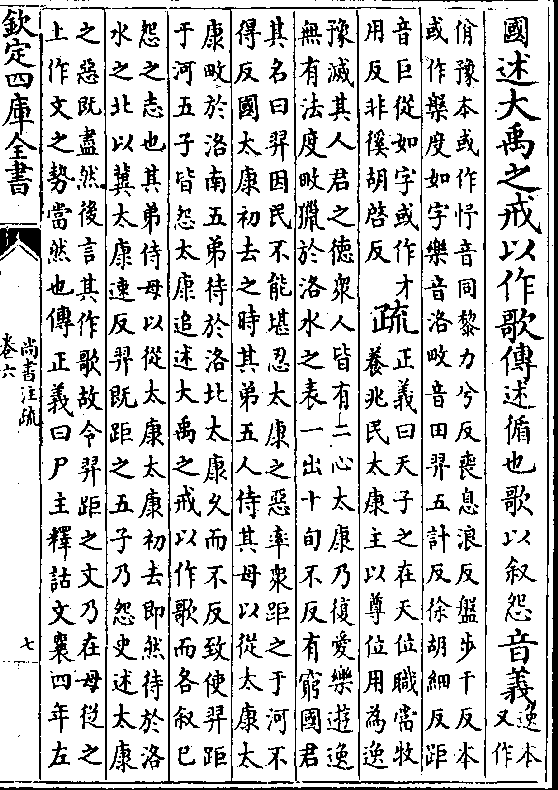 國述大禹之戒以作歌傳述循也歌以叙怨音義逸本
又作
佾豫本或作忬音同黎力兮反喪息浪反盤步干反本
或作槃度如字樂音洛畋音田羿五計反徐胡細反距
音巨從如字或作才
用反非徯胡啓反
疏
正義曰天子之在天位職當牧
養兆民太康主以尊位用為逸
豫滅其人君之德衆人皆有二心太康乃復愛樂遊逸
無有法度畋獵於洛水之表一出十旬不反有窮國君
其名曰羿因民不能堪忍太康之惡率衆距之于河不
得反國太康初去之時其弟五人侍其母以從太康太
康畋於洛南五弟待於洛北太康久而不反致使羿距
于河五子皆怨太康追述大禹之戒以作歌而各叙已
怨之志也其弟侍母以從太康太康初去即然待於洛
水之北以冀太康速反羿既距之五子乃怨史述太康
之惡既盡然後言其作歌故令羿距之文乃在母從之
上作文之勢當然也傳正義曰尸主釋詁文襄四年左
欽定四庫全書
尚書注疏
卷六
七